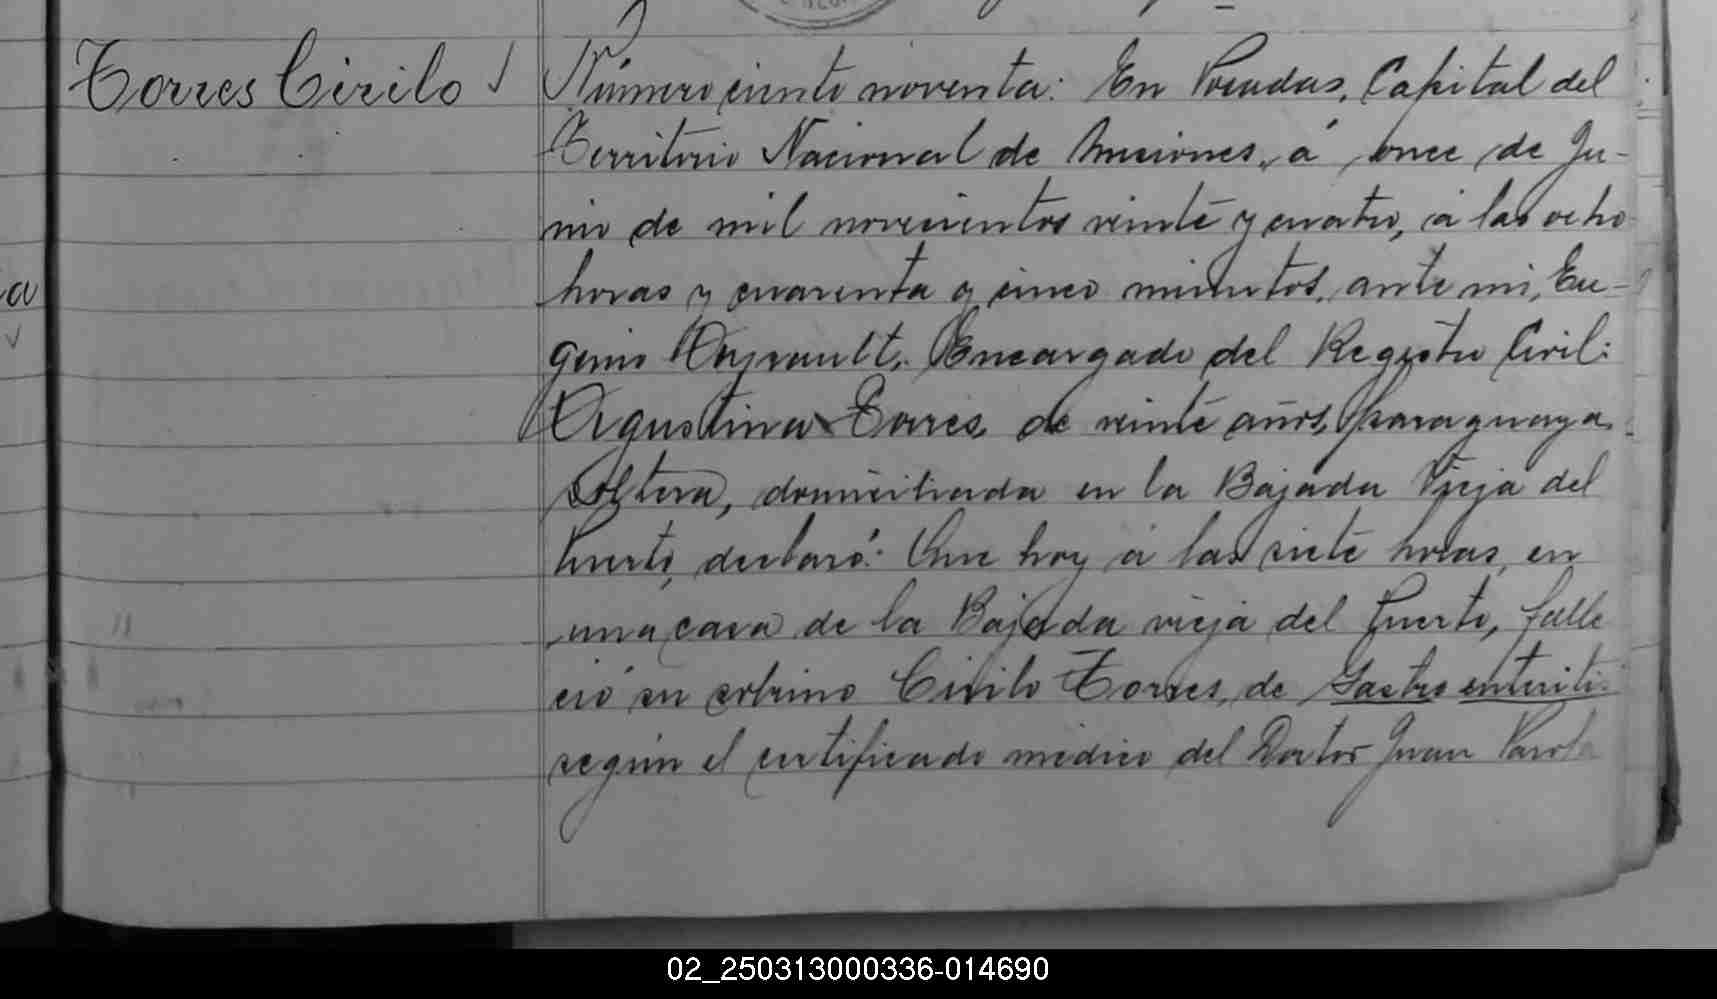 Torres Cirilo
Número ciento noventa: En Posadas, Capital del
Territorio Nacional de Misiones, á once de Ju-
nio de mil novecientos veinte y cuatro, á las ocho
horas y cuarenta y cinco minutos, ante mi, Eu-
genio Encargado del Registro Civil:
Agustina Torres de veinte años, paraguaya
soltera, domiciliada en la Bajada Vieja del
Puerto, declaró: Que hoy á las siete horas, en
una casa de la Bajada vieja del Puerto, falle
ció su sobrino Cirilo Torres, de Gastro enteritis
según el certificado médico del Doctor Juan
02_250313000336-014690